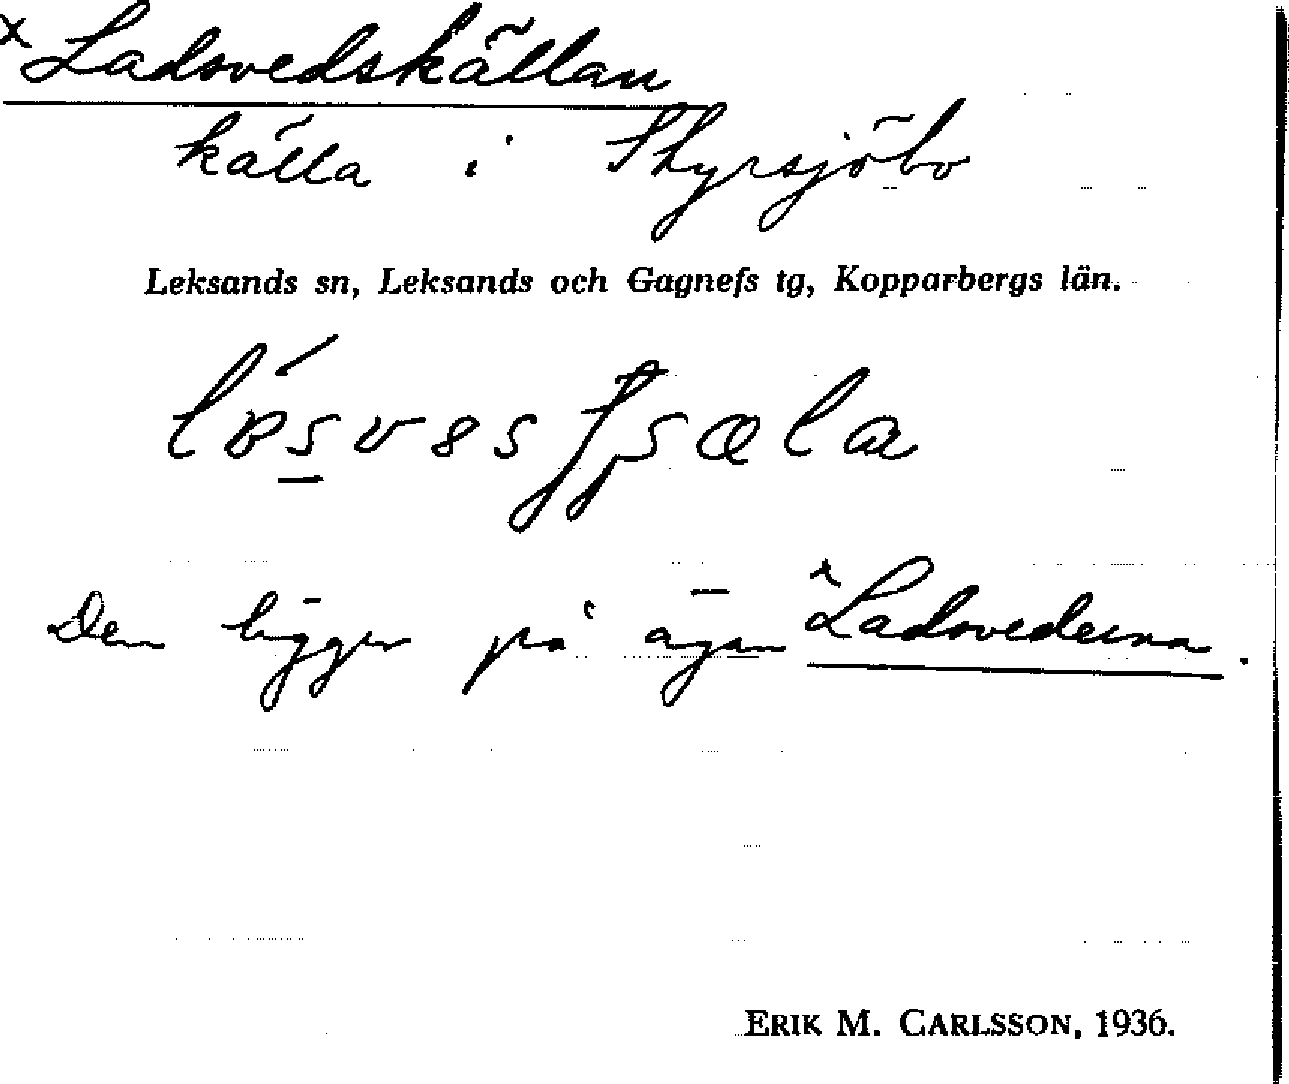 x Ladsvedskällan
källa i Thyrsjöbo
Leksands sn, Leksands och Gagnefs tg, Kopparbergs län.
Den ligger på ägan x Ladsvederna.
ERIK M. CARLSSON, 1936.